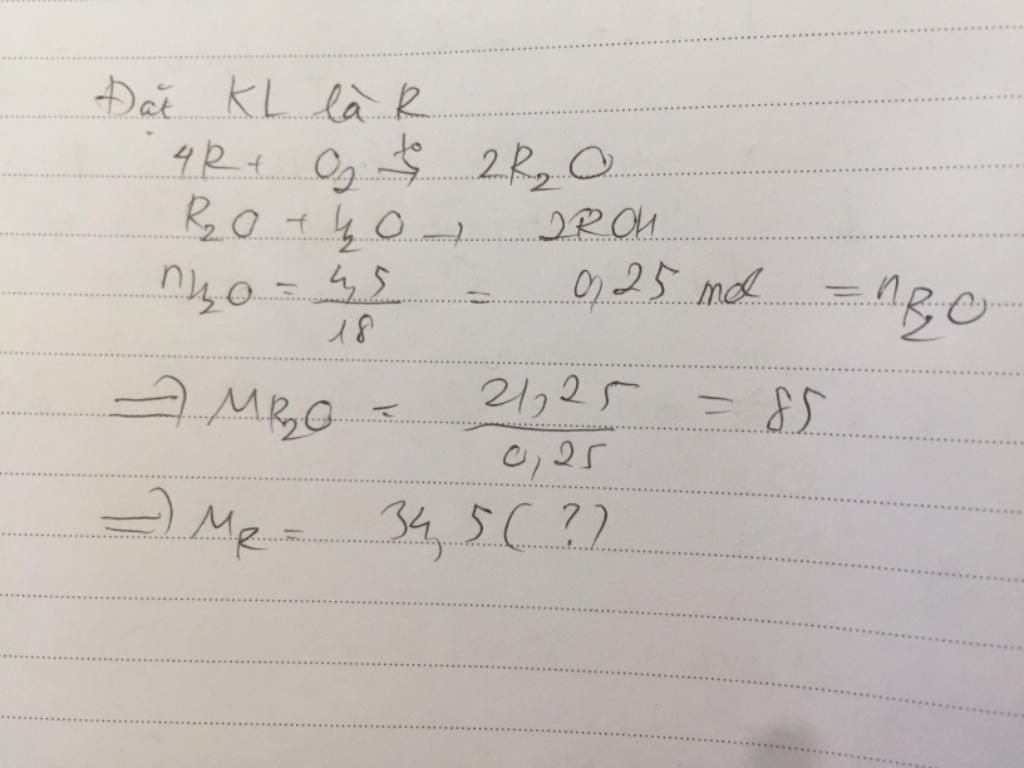 Đặt KL là R
4R + O₂ →(t°) 2R₂O
R₂O + H₂O → 2ROH
nH₂O = 4,5/18 = 0,25 mol = nR₂O
⇒ MR₂O = 21,25/0,25 = 85
⇒ MR = 34,5 (?)